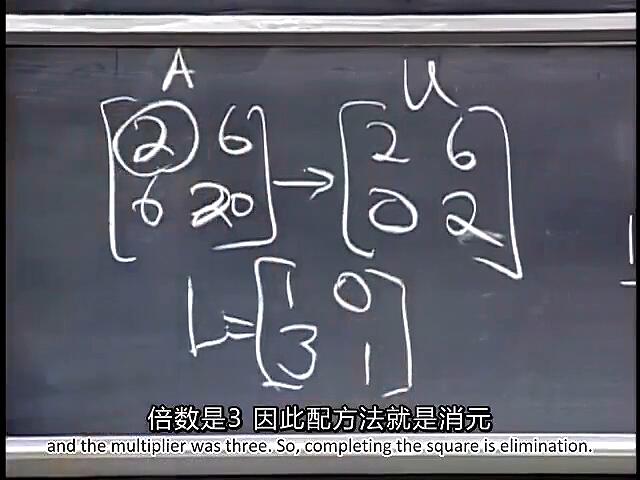 A U
2 6 → 2 6
6 20 0 2
L = 1 0
3 1
倍数是3 因此配方法就是消元
and the multiplier was three. So, completing the square is elimination.